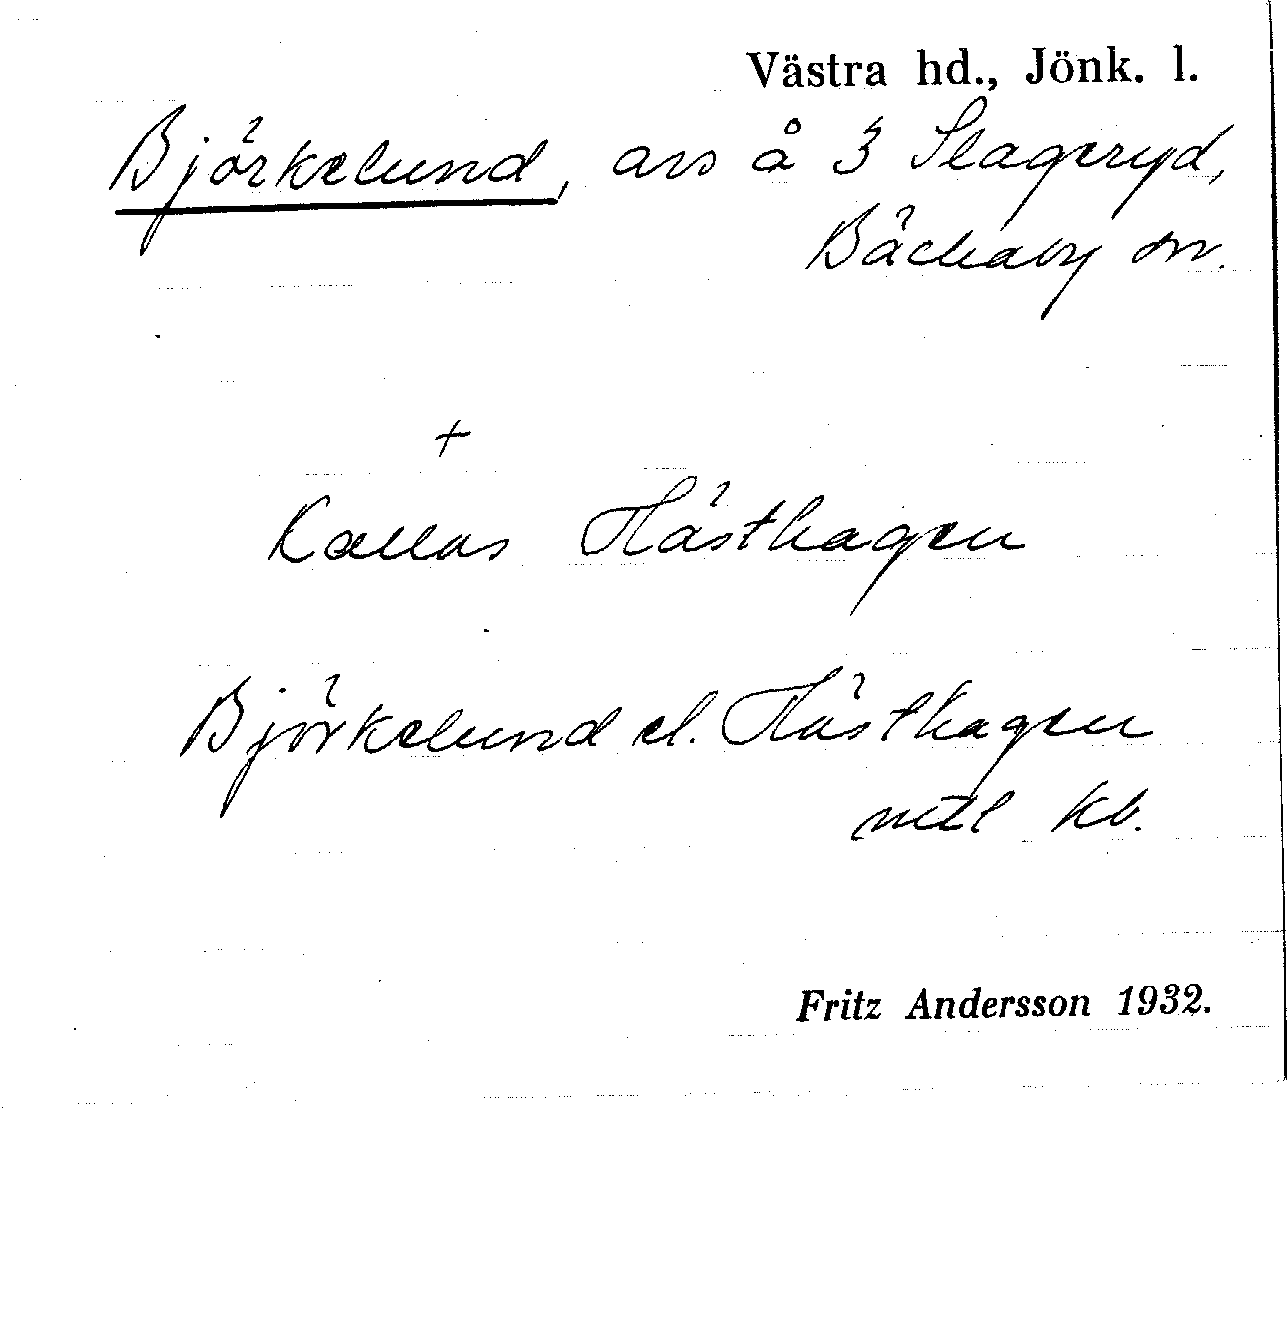 Västra hd., Jönk. l.
Björkelund, avs å 3 Slageryd,
Bäckaby sn.
+
Kallas Hästhagen
Björkelund el. Hästhagen
mtl kb.
Fritz Andersson 1932.